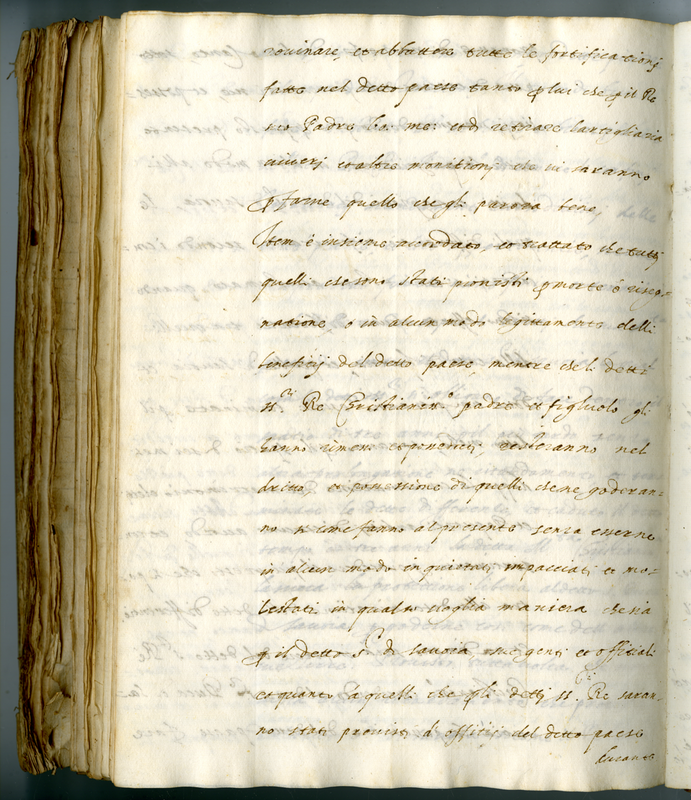 rovinare, et abbattere tutte le fortificationj
fatte nel detto paese tanto p lui che p il Re
suo Padre bo: me: et di retirare lartigliaria
viverj et altre monitionj che vi saranno
p farne quello che gli parera bene;
Item è insieme accordato, et trattato, che tuttj
quelli che sono stati provisti p morte ò risig-
natione, o in alcun modo legittamente delli
beneficij del detto paese, mentre che li detti
ss.ri Re Christianiss.o padre et figliuolo gli
hanno tenuti et posseduti, resteranno nel
dritto, et possessione di quelli che ne goderan-
no si come fanno al presente senza esserne
in alcun modo inquietati, impacciati et mo-
lestati in qual si voglia maniera che sia
p il detto s.r d. savoia sue genti et officiali
et quanto a quelli che gli dettj ss.ri Re saran-
no stati provisti d'officij del detto paese
durante